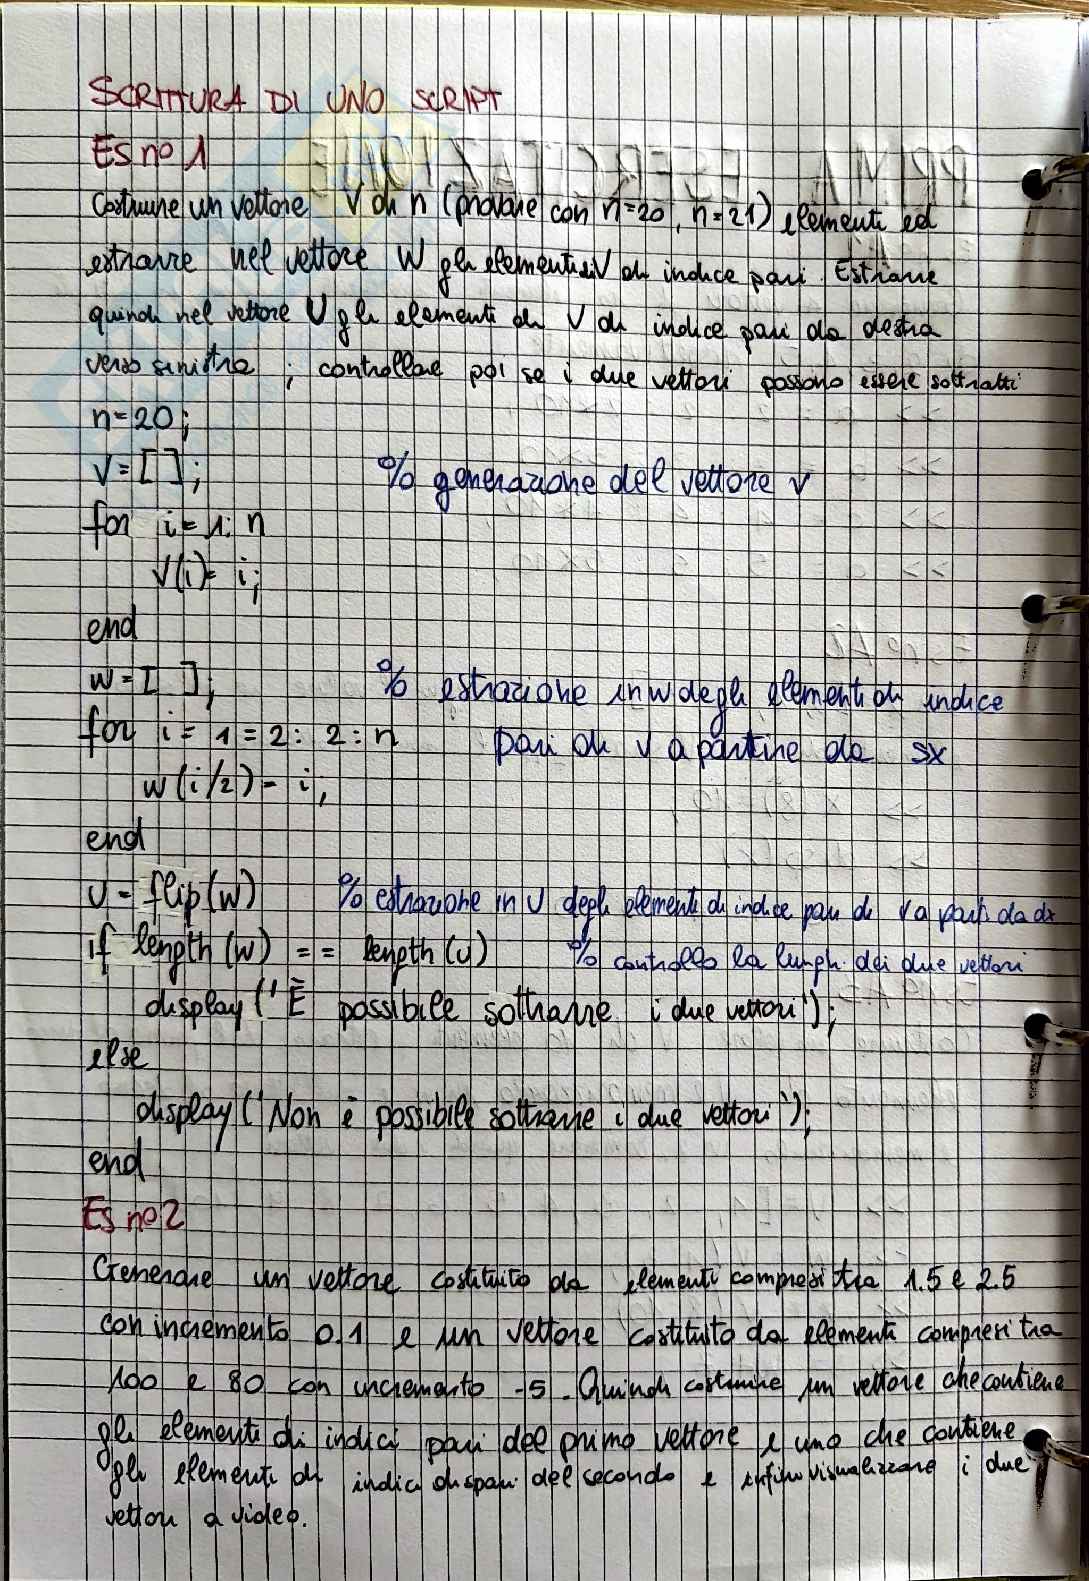 SCRITTURA DI UNO SCRIPT
Es n° 1
Costruire un vettore V di n (provare con n=20, n=21) elementi ed
estrarre nel vettore W gli elementi di V di indice pari. Estrarre
quindi nel vettore U gli elementi di V di indice pari da destra
verso sinistra ; controllare poi se i due vettori possono essere sottratti
n=20;
V=[ ]; % generazione del vettore v
for i=1:n
V(i)= i;
end
w=[ ]; % estrazione in w degli elementi di indice
for i= 1=2: 2: n pari di v a partire da sx
w(i/2)= i;
end
U= flip(w) % estrazione in U degli elementi di indice pari di v a parti da dx
if length(w) == length(u) % controllo la lungh. dei due vettori
display('È possibile sottrarre i due vettori');
else
display('Non è possibile sottrarre i due vettori');
end
Es n° 2
Generare un vettore costituito da elementi compresi tra 1.5 e 2.5
con incremento 0.1 e un vettore costituito da elementi compresi tra
100 e 80 con incremento -5. Quindi costruire un vettore che contiene
gli elementi di indici pari del primo vettore e uno che contiene
gli elementi di indici dispari del secondo e infine visualizzare i due
vettori a video.